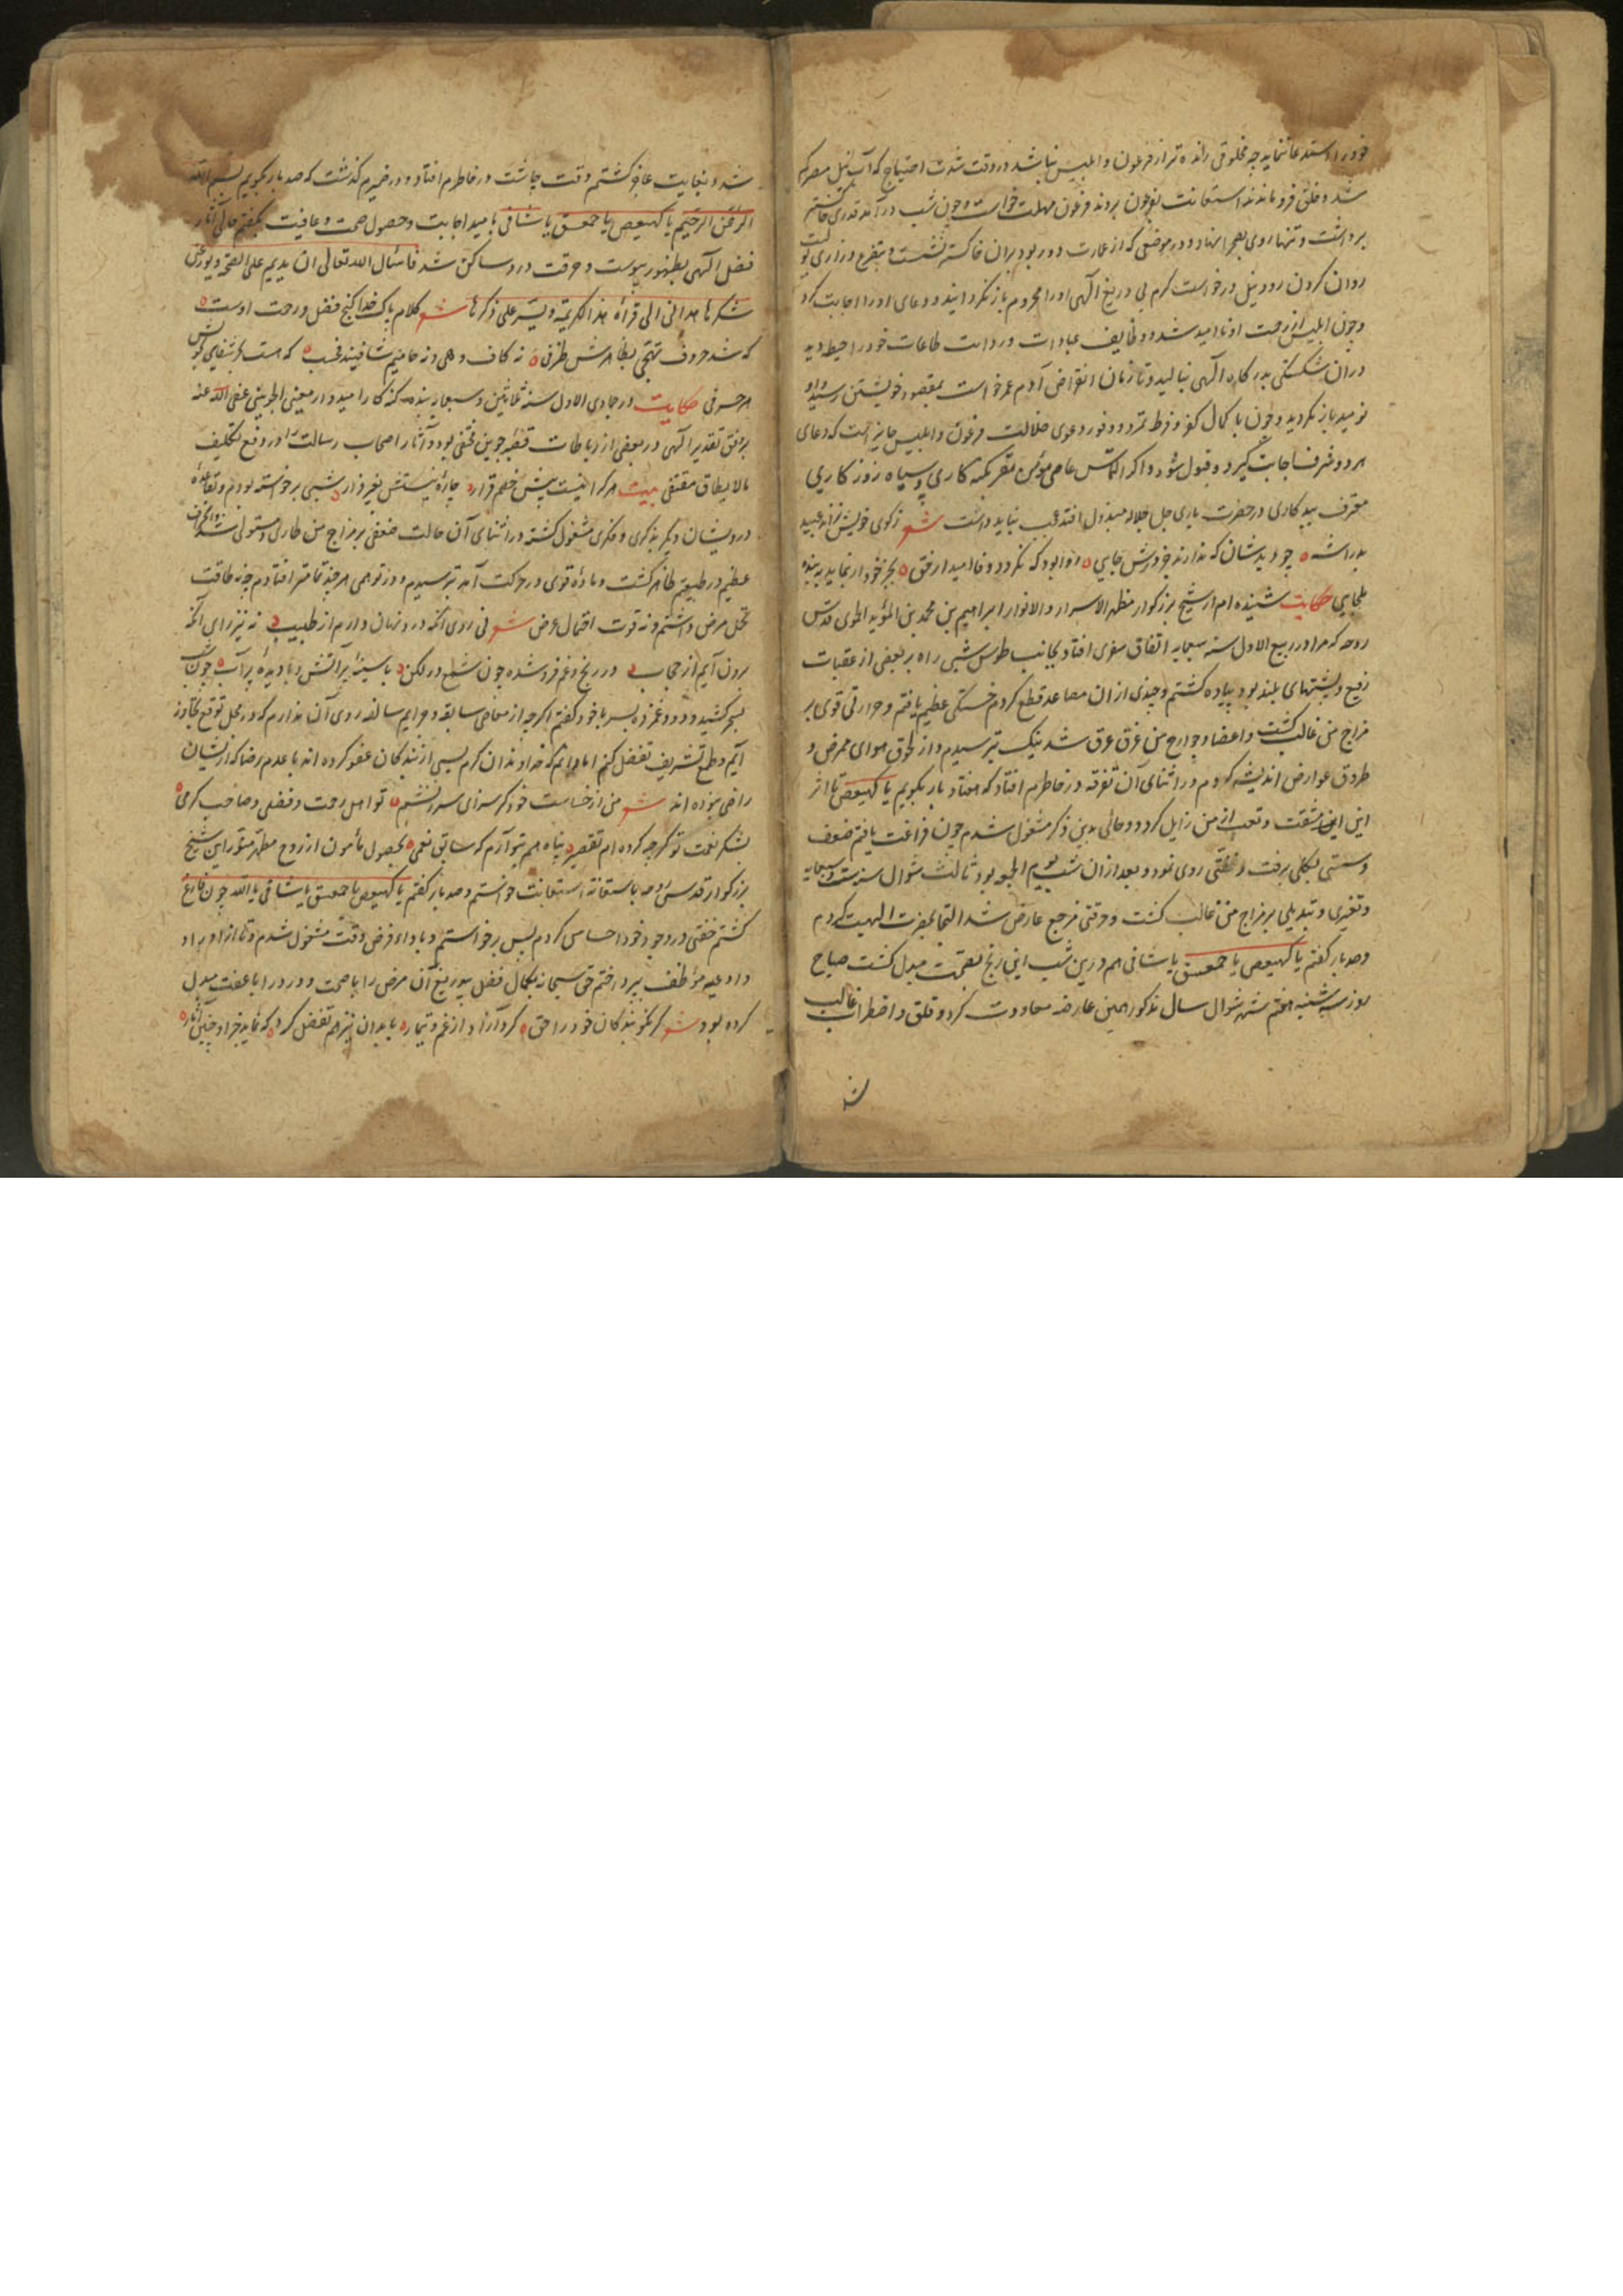 خود را استدعا نماید چه مخلوقی رانده تر از فرعون و ابلیس نباشد در وقت شدت احتیاج که آب نیل مصر کم
شد و خلق فرو ماندند استعانت بفرعون بردند فرعون مهلت خواست و چون شب در آمد قدری خاکستر
برداشت و تنها روی بصحرا نهاد و در موضعی که از عمارت دور بود بران خاکستر نشست و بتضرع و زاری
روان کردن رود نیل درخواست کرم بی دریغ الهی او را محروم باز نکردانید و دعای او را اجابت کرد
و چون ابلیس از رحمت او ناامید شد و وظایف عبادات و طاعات خود را حیطه دید
دران شکستگی بدرکاه الهی بنالید و تا زمان انقراض آدم عمر خواست بمقصود خویشتن رسید و
نومید باز نکردید و چون با کمال کفر و فرط تمرد و وفور دعوی ضلالت فرعون و ابلیس جایز است که دعای
هر دو شرف اجابت گیرد و قبول شود و اکر التماس عاصی مؤمن مقر بکنه کاری و سیاه روزکاری
معترف ببدکاری در حضرت باری جل جلاله مبذول افتد عجب نباید داشت شعر ز کوی خویش نراند عبید
بد را شه چو دید شان که ندارند جز درش جایی روا بود که نکردد وفا امید ار فق بجز خود ار نماید به بنده
ملجایی حکایت شنیده ام از شیخ بزرکوار مظهر الاسرار و الانوار ابراهیم بن محمد بن المؤید الحموی قدس
روحه که مرا در ربیع الاول سنه سبعمایه اتفاق سفری افتاد بجانب طوس شبی راه بر بعضی از عقبات
رفیع و پشتهای بلند بود پیاده کشتم و چندی ازان مصاعد قطع کردم خستکی عظیم یافتم و حرارتی قوی بر
مزاج من غالب کشت و اعضا و جوارح من غرق عرق شد نیک ترسیدم و از لحوق هوای ممرض و
طروق عوارض اندیشه کردم در اثنای آن تفرقه در خاطرم افتاد که هفتاد بار بکویم یا کهیعص تا اثر
این مشقت و تعب از من زایل کردد و حالی بدین ذکر مشغول شدم چون فراغت یافتم ضعف
و سستی بکلی برفت و خفتی روی نمود و بعد ازان شب یوم الجمعه بود ثالث شوال سنه ست و سبعمایه
و تغیری و تبدیلی بر مزاج من غالب کشت و حرقتی مزعج عارض شد التجا بحضرت الهیت کردم
و صد بار کفتم یا کهیعص یا حمعسق یا شافی هم درین شب این رنج بصحت مبدل کشت صباح
روز سه شنبه هفتم شهر شوال سال مذکور همین عارضه معاودت کرد و قلق و اضطراب غالب
شد
شد و بغایت عاجز کشتم وقت چاشت در خاطرم افتاد و در ضمیرم کذشت که صد بار بکویم بسم الله
الرحمن الرحیم یا کهیعص یا حمعسق یا شافی بامید اجابت و حصول صحت و عافیت بکفتم حالی آثار
فضل الهی بظهور پیوست و حرقت درد ساکن شد فاسئال الله تعالی ان یدیم علی الصحة و یوزعنی
شکرها هدانی الی قرأة هذا الکریمة و یسر علی ذکرها شعر کلام پاک خدا کنج فضل و رحمت اوست
که شد حروف تهجی بظاهرش طرفی نه کاف و هی و نه حامیم شافیند فحسب که هست
هر حرفی حکایت در جمادی الاول سنه ثلاثین و سبعمایه بنده کنه کار امیدوار معینی الجوینی عفی الله عنه
بر وفق تقدیر الهی در بعضی از رباطات قصبه جوین مختفی بود و آثار اصحاب رسالت را در دفع تکلیف
مالایطاق مقتفی بیت هر کرا نیست پیش خصم قرار چارهٔ نیستش بغیر فرار شبی برخواسته بودم و بقاعدهٔ
درویشان دیکر بذکری و فکری مشغول کشته در اثنای آن حالت ضعفی بر مزاج من طاری و مستولی شد
عظیم در طبیعتم ظاهر کشت و مادهٔ قوی در حرکت آمد ترسیدم و در توهمی هر چه تمامتر افتادم چه نه طاقت
تحمل مرض داشتم و نه قوت احتمال عرض شعر نی روی آنکه درد نهان دارم از طبیب نه نیز رای آنکه
برون آیم از حجاب در رنج و غم فرو شده چون شمع در لکن با سینهٔ پر آتش و با دیدهٔ پر آب چون شب
بسحر کشید و درد و غم زده بسر با خود کفتم اکرچه از معاصی سابقه و جرایم سالفه روی آن ندارم که در محل توقع تجاوز
آیم و طمع تشریف تفضل کنم اما دانم که خداوندان کرم بسی از بندکان عفو کرده اند با عدم رضا که از ایشان
راضی بوده اند شعر من از خساست خود کر سزای سرزنشم تو اهل رحمت و فضلی و صاحب کرمی
بشکر نعمت تو کرچه کرده ام تقصیر پناه هم بتو آرم که سابق نعمی بحصول مأمون از روح مطهر منور این شیخ
بزرکوار قدس روحه باستغاثه استعانت خواستم و صد بار کفتم یا کهیعص یا حمعسق یا شافی یا الله چون فارغ
کشتم خفتی در وجود خود احساس کردم پس برخواستم و باداء فرض وقت مشغول شدم و تا از اوراد
و ادعیه موظف بپرداختم حق سبحانه بکمال فضل بیدریغ آن مرض را با صحت و درد را با عفت مبدل
کرده بود شعر کر نکو بندکان خود را حق کرد آزاد از غم و تیمار با بدان نیز هم تفضل کرد که نماید جز او چنین آثار